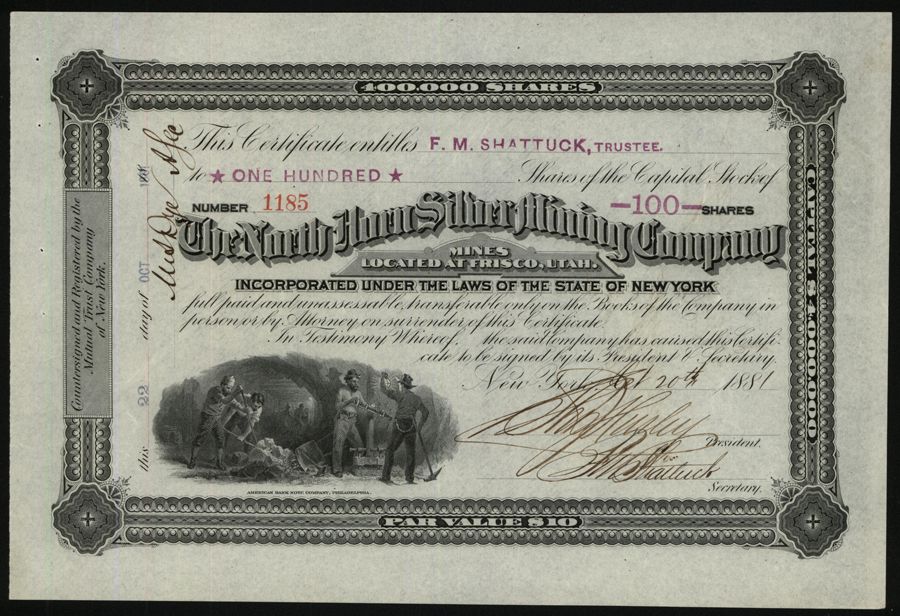 400.000 SHARES
This Certificate entitles F. M. SHATTUCK, TRUSTEE.
to ★ ONE HUNDRED ★ Shares of the Capital Stock of
NUMBER 1185 —100— SHARES
The North Horn Silver Mining Company
MINES
LOCATED AT FRISCO, UTAH.
INCORPORATED UNDER THE LAWS OF THE STATE OF NEW YORK
full paid and unassessable, transferable only on the Books of the Company in
person or by Attorney on surrender of this Certificate.
In Testimony Whereof, the said Company has caused this Certifi-
cate to be signed by its President & Secretary.
New York, Oct 20th 1881
President.
F M Shattuck
Secretary.
AMERICAN BANK NOTE COMPANY, PHILADELPHIA.
PAR VALUE $10
Countersigned and Registered by the
Mutual Trust Company
of New York.
this 22 day of OCT
CAPITAL $4,000,000